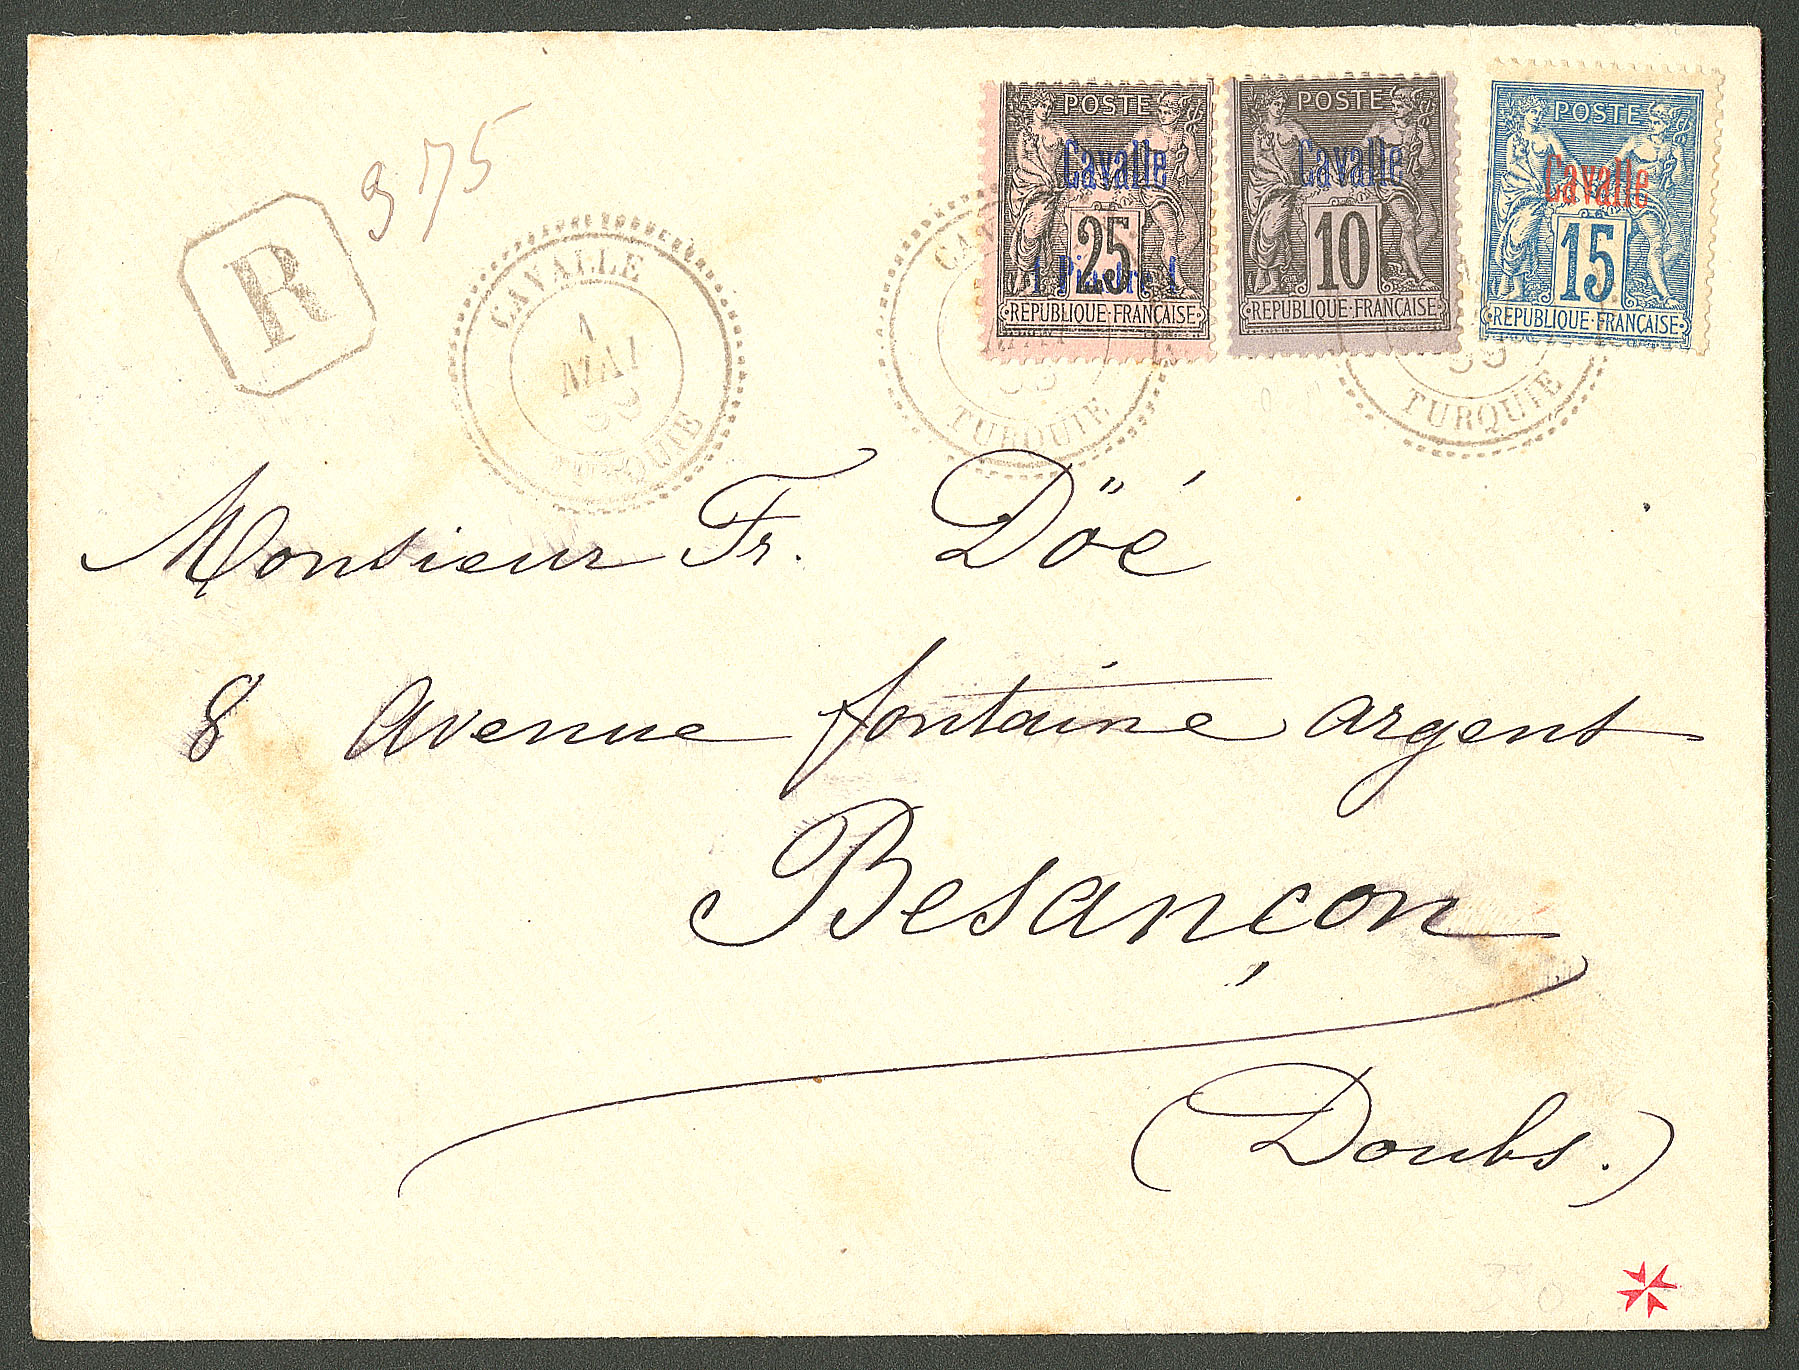 R
975
CAVALLE
1
MAI
99
TURQUIE
POSTE
Cavalle
25
1 Piastre 1
REPUBLIQUE FRANÇAISE
POSTE
Cavalle
10
REPUBLIQUE FRANÇAISE
POSTE
Cavalle
15
REPUBLIQUE FRANÇAISE
TURQUIE
99
TURQUIE
Monsieur Fr. Döé
8 Avenue fontaine argent
Besançon
(Doubs.)